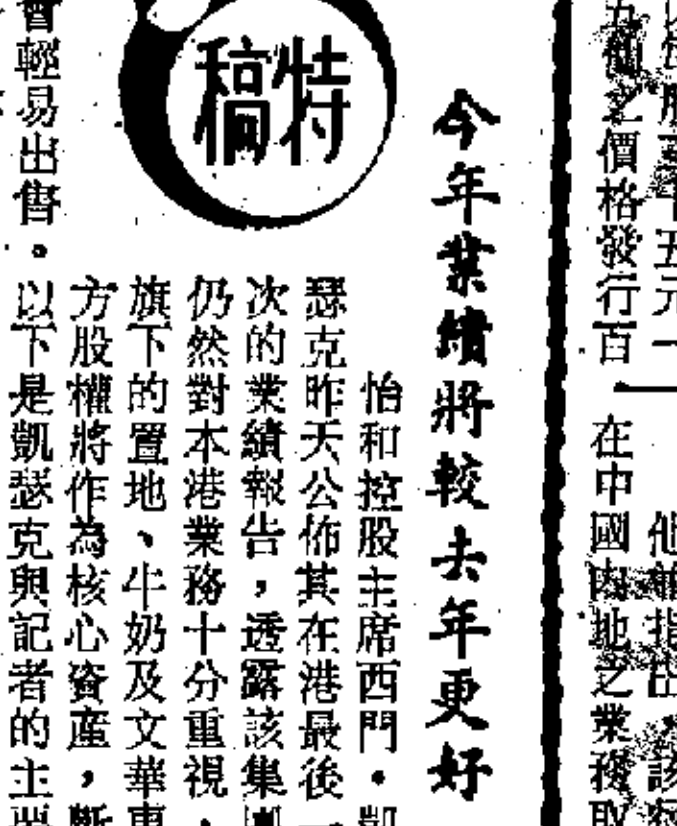 五元一
之價格發行百
指出，該
在中國內地之業務取
今年業績將較去年更好
特稿
怡和控股主席西門・凱
瑟克昨天公佈其在港最後一
次的業績報告，透露該集團
仍然對本港業務十分重視，
旗下的置地、牛奶及文華東
方股權將作為核心資產，斷
會輕易出售。以下是凱瑟克與記者的主要